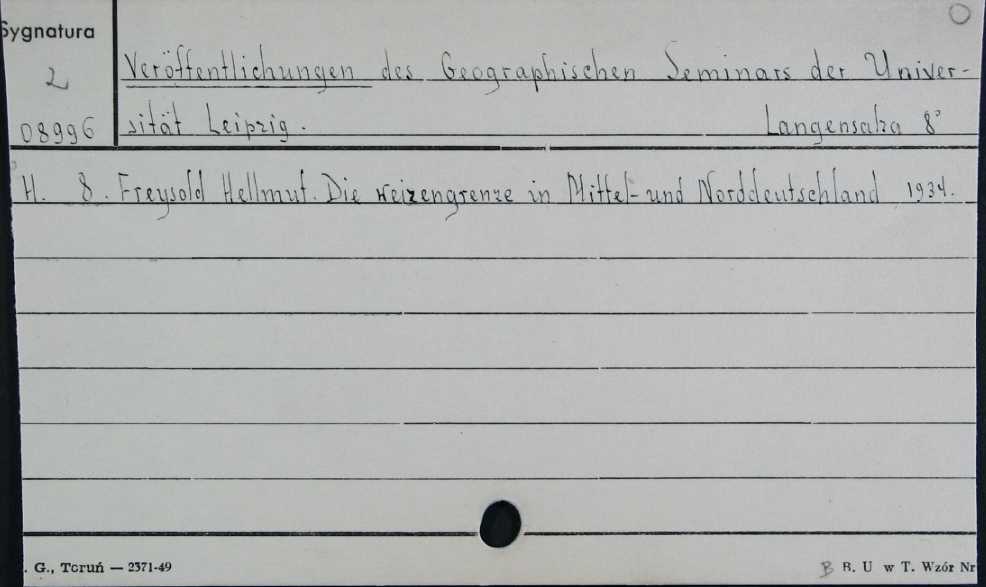 Sygnatura
2
08996
Veröffentlichungen des Geographischen Seminars der Univer-
sität Leipzig. Langensalza 8°
H. 8. Freysold Hellmut. Die Weizengrenze in Mittel- und Norddeutschland 1934.
. G., Toruń — 2371-49
B. U w T. Wzór Nr